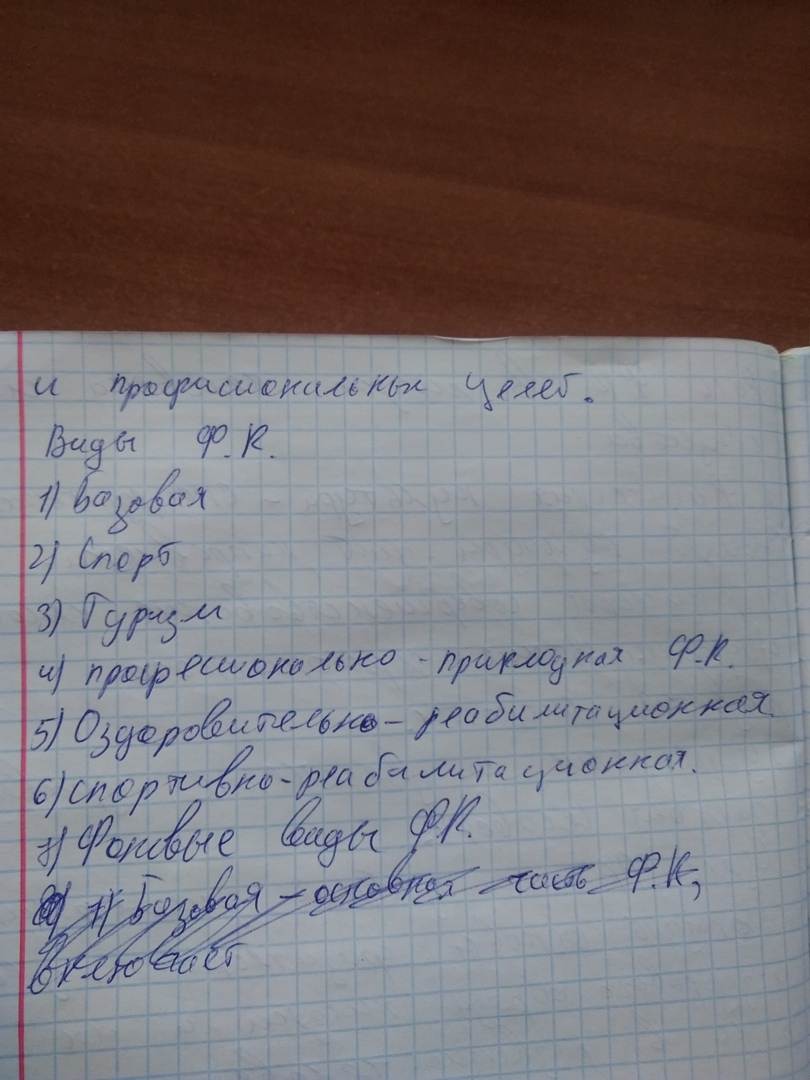 и профисиональных целей.
Виды Ф.К.
1) Базовая
2) Спорт
3) Туризм
4) професионально-прикладная Ф.К.
5) Оздоровительно-реабилитационная
6) спортивно-реабилитационная.
7) Фоновые виды Ф.К.
1) Базовая - основная часть Ф.К,
включает